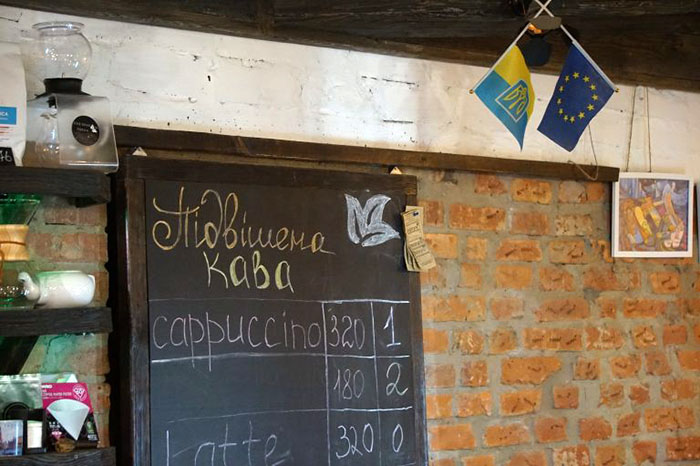 Підвішена
кава
cappuccino 320 1
180 2
Latte 320 0